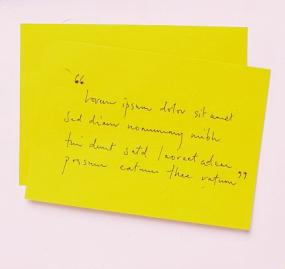 “
Lorem ipsum dolor sit amet
sed diam nonummy nibh
tin dunt satd laoreet adean
possum eatum thee ratum ”